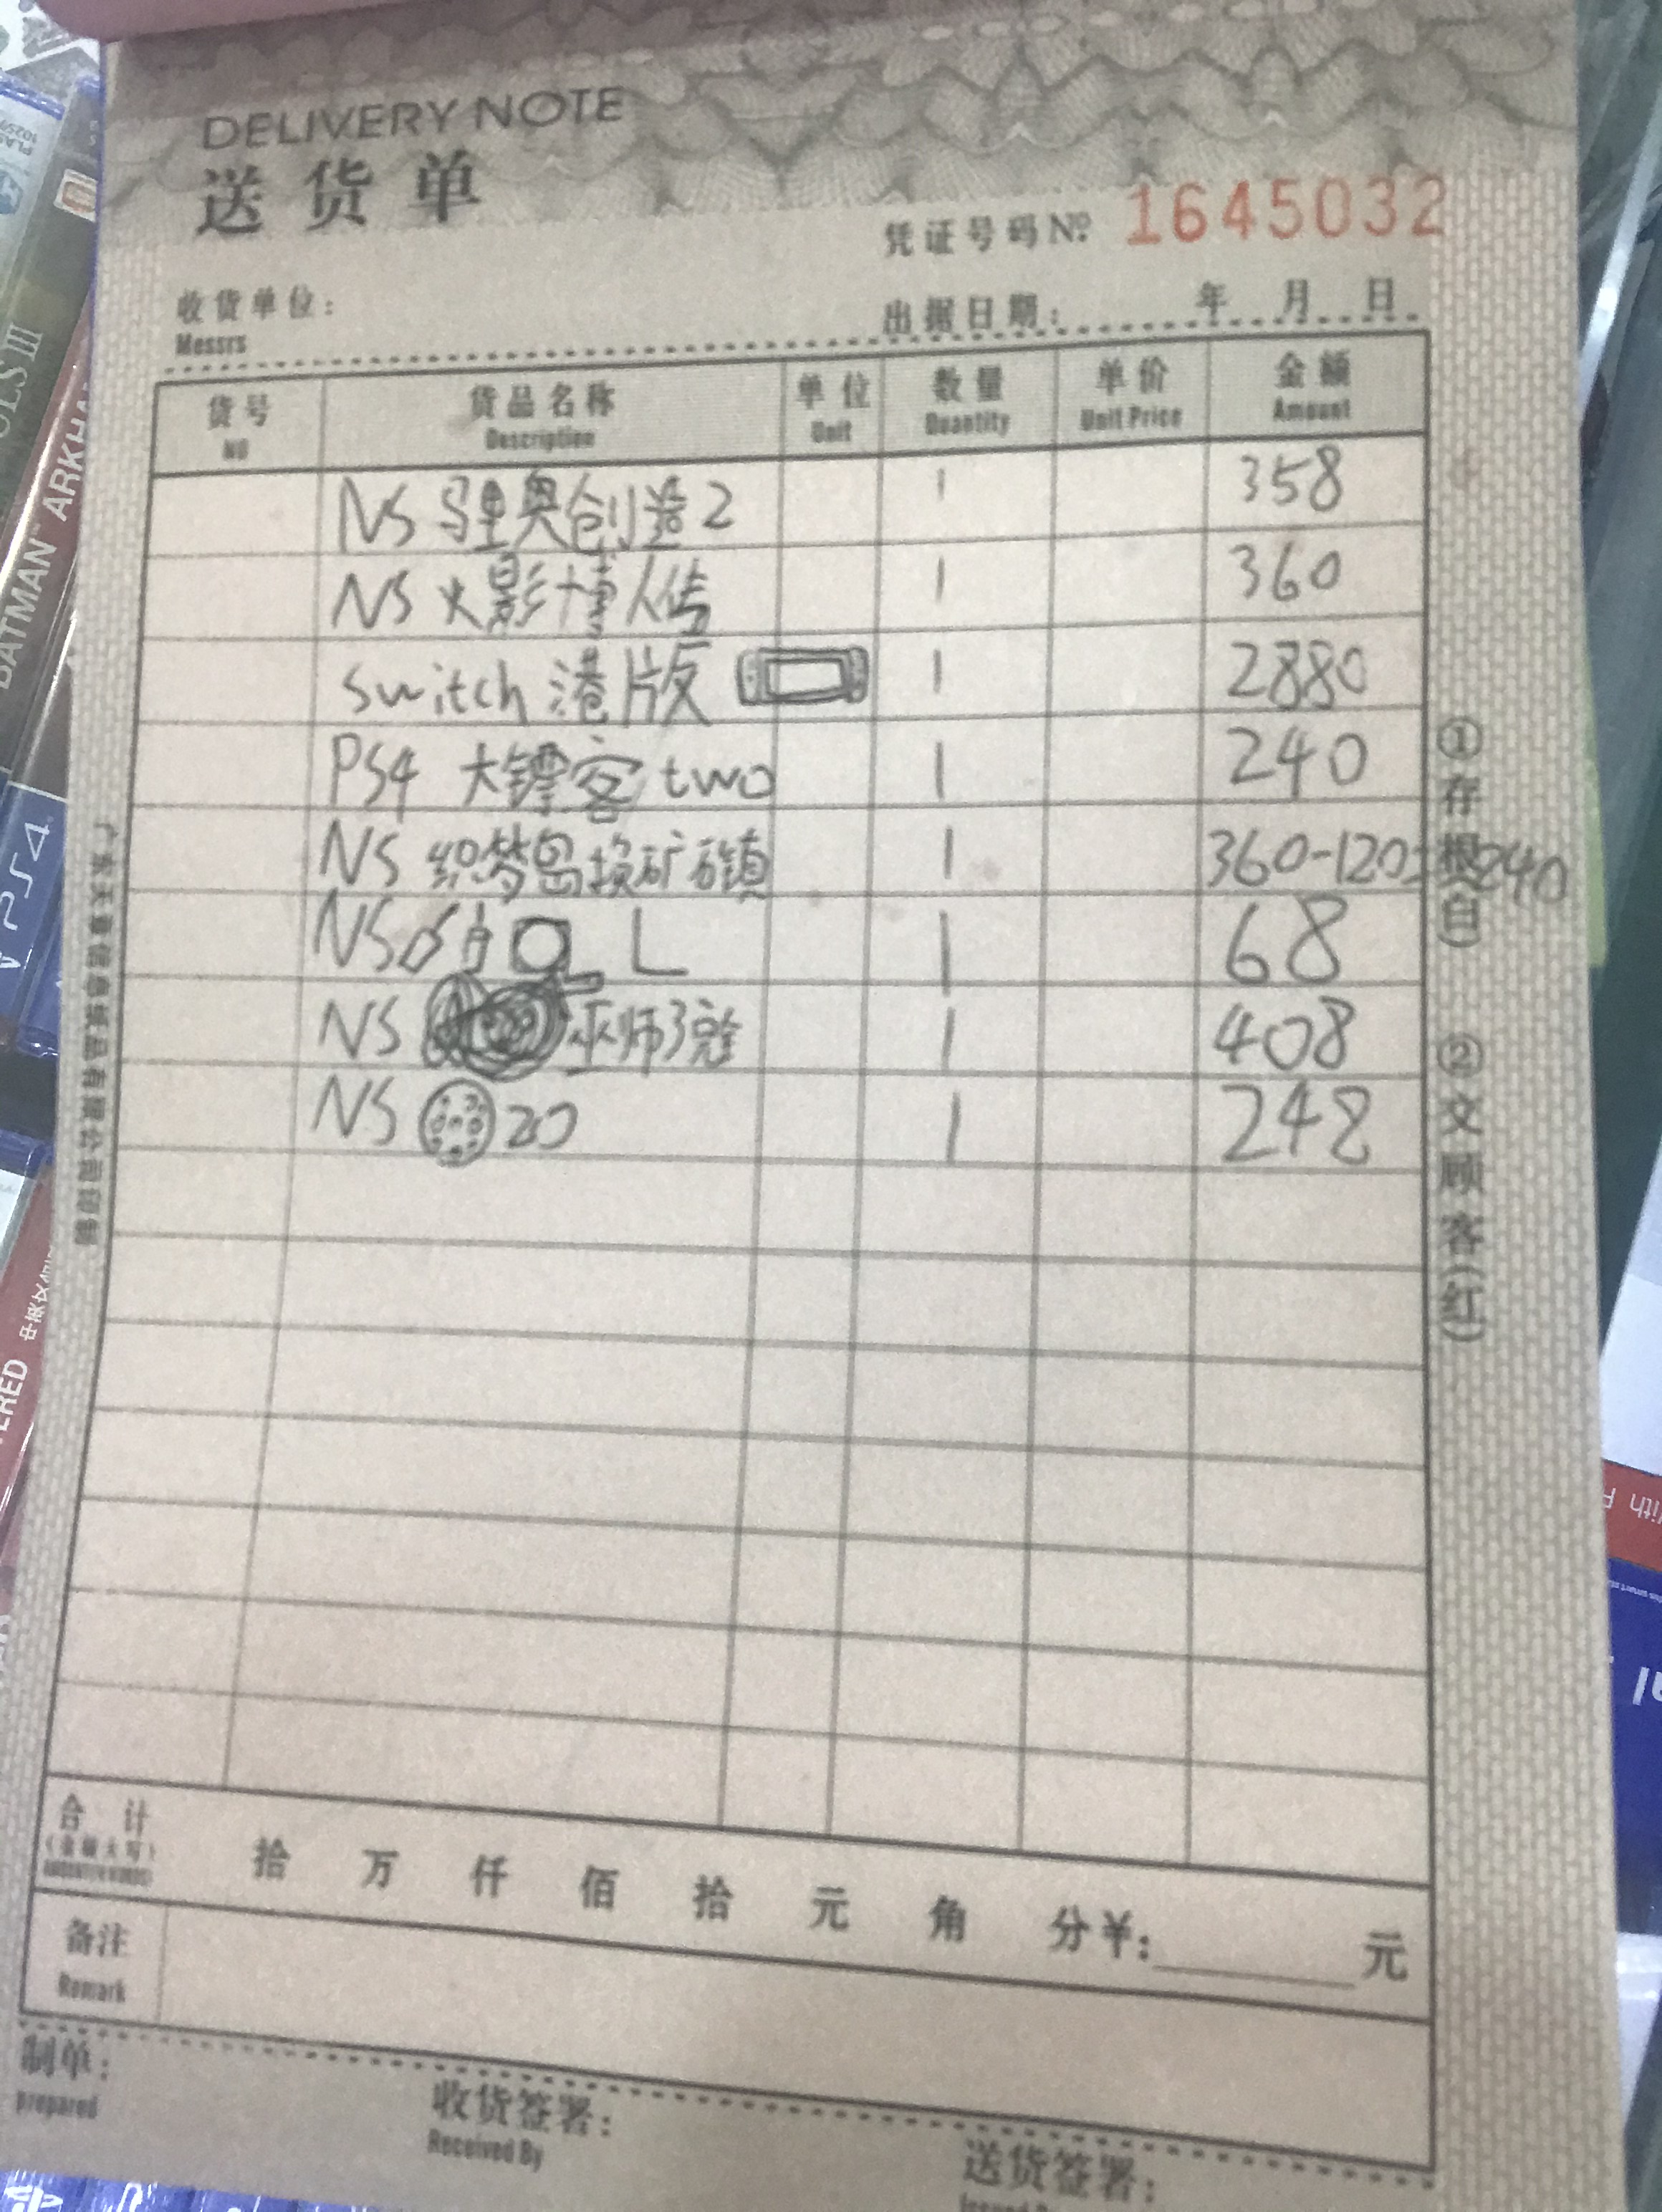 DELIVERY NOTE
送货单
凭证号码Nº 1645032
收货单位:
Messrs
出据日期: 年 月 日
货号 货品名称 单位 数量 单价 金额
NO Description Unit Quantity Unit Price Amount
NS 马里奥创造2 1 358
NS 火影博人传 1 360
switch 港版 1 2880
PS4 大镖客 two 1 240
NS 织梦岛换矿石镇 1 360-120=240
NS L 1 68
NS 巫师3完全 1 408
NS 20 1 248
合计
(金额大写)
拾 万 仟 佰 拾 元 角 分 ¥: 元
备注
Remark
制单:
prepared
收货签署:
Received By
送货签署:
①存根(白) ②文顾客(红)
BATMAN ARKHA
PS4
TERED